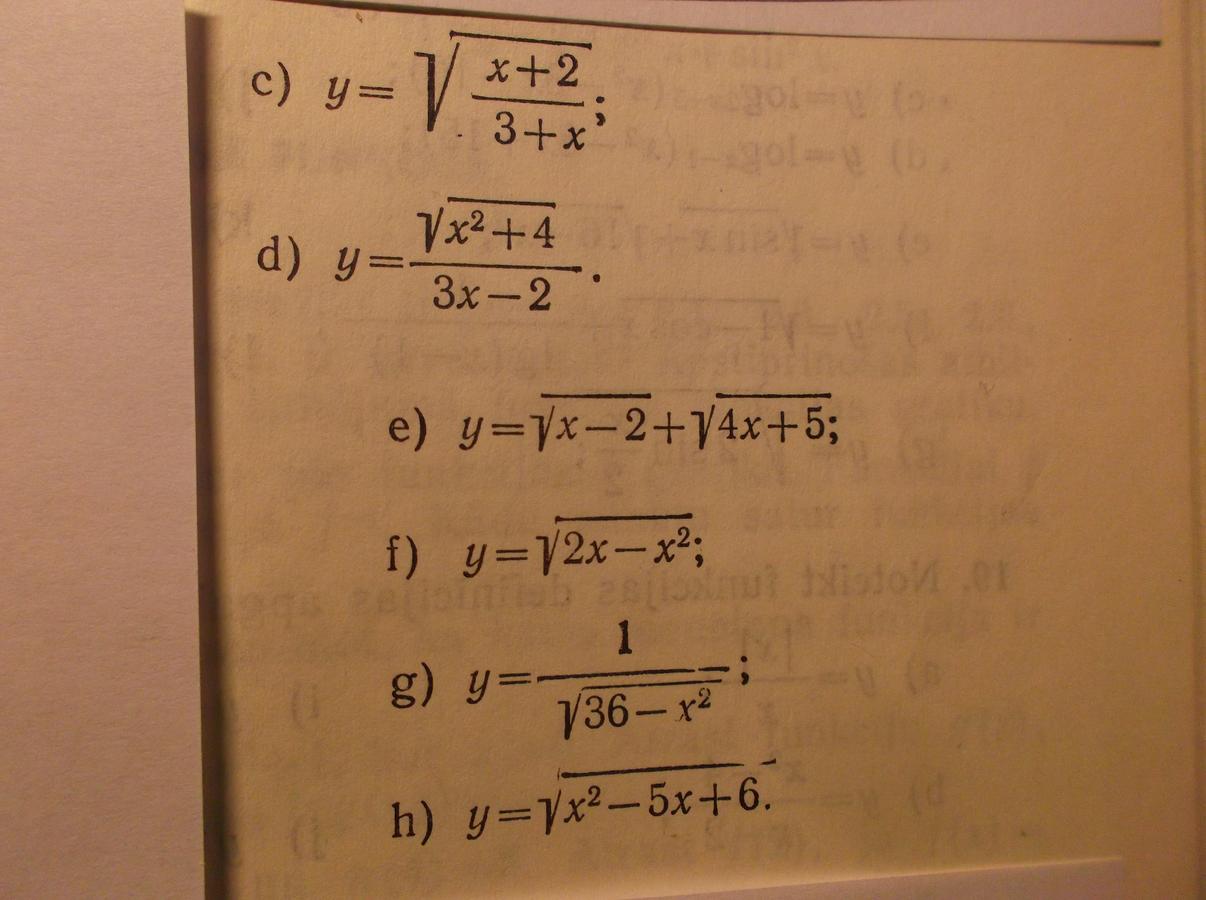 c) y=√((x+2)/(3+x));
d) y=√(x²+4)/(3x−2).
e) y=√(x−2)+√(4x+5);
f) y=√(2x−x²);
g) y=1/√(36−x²);
h) y=√(x²−5x+6).